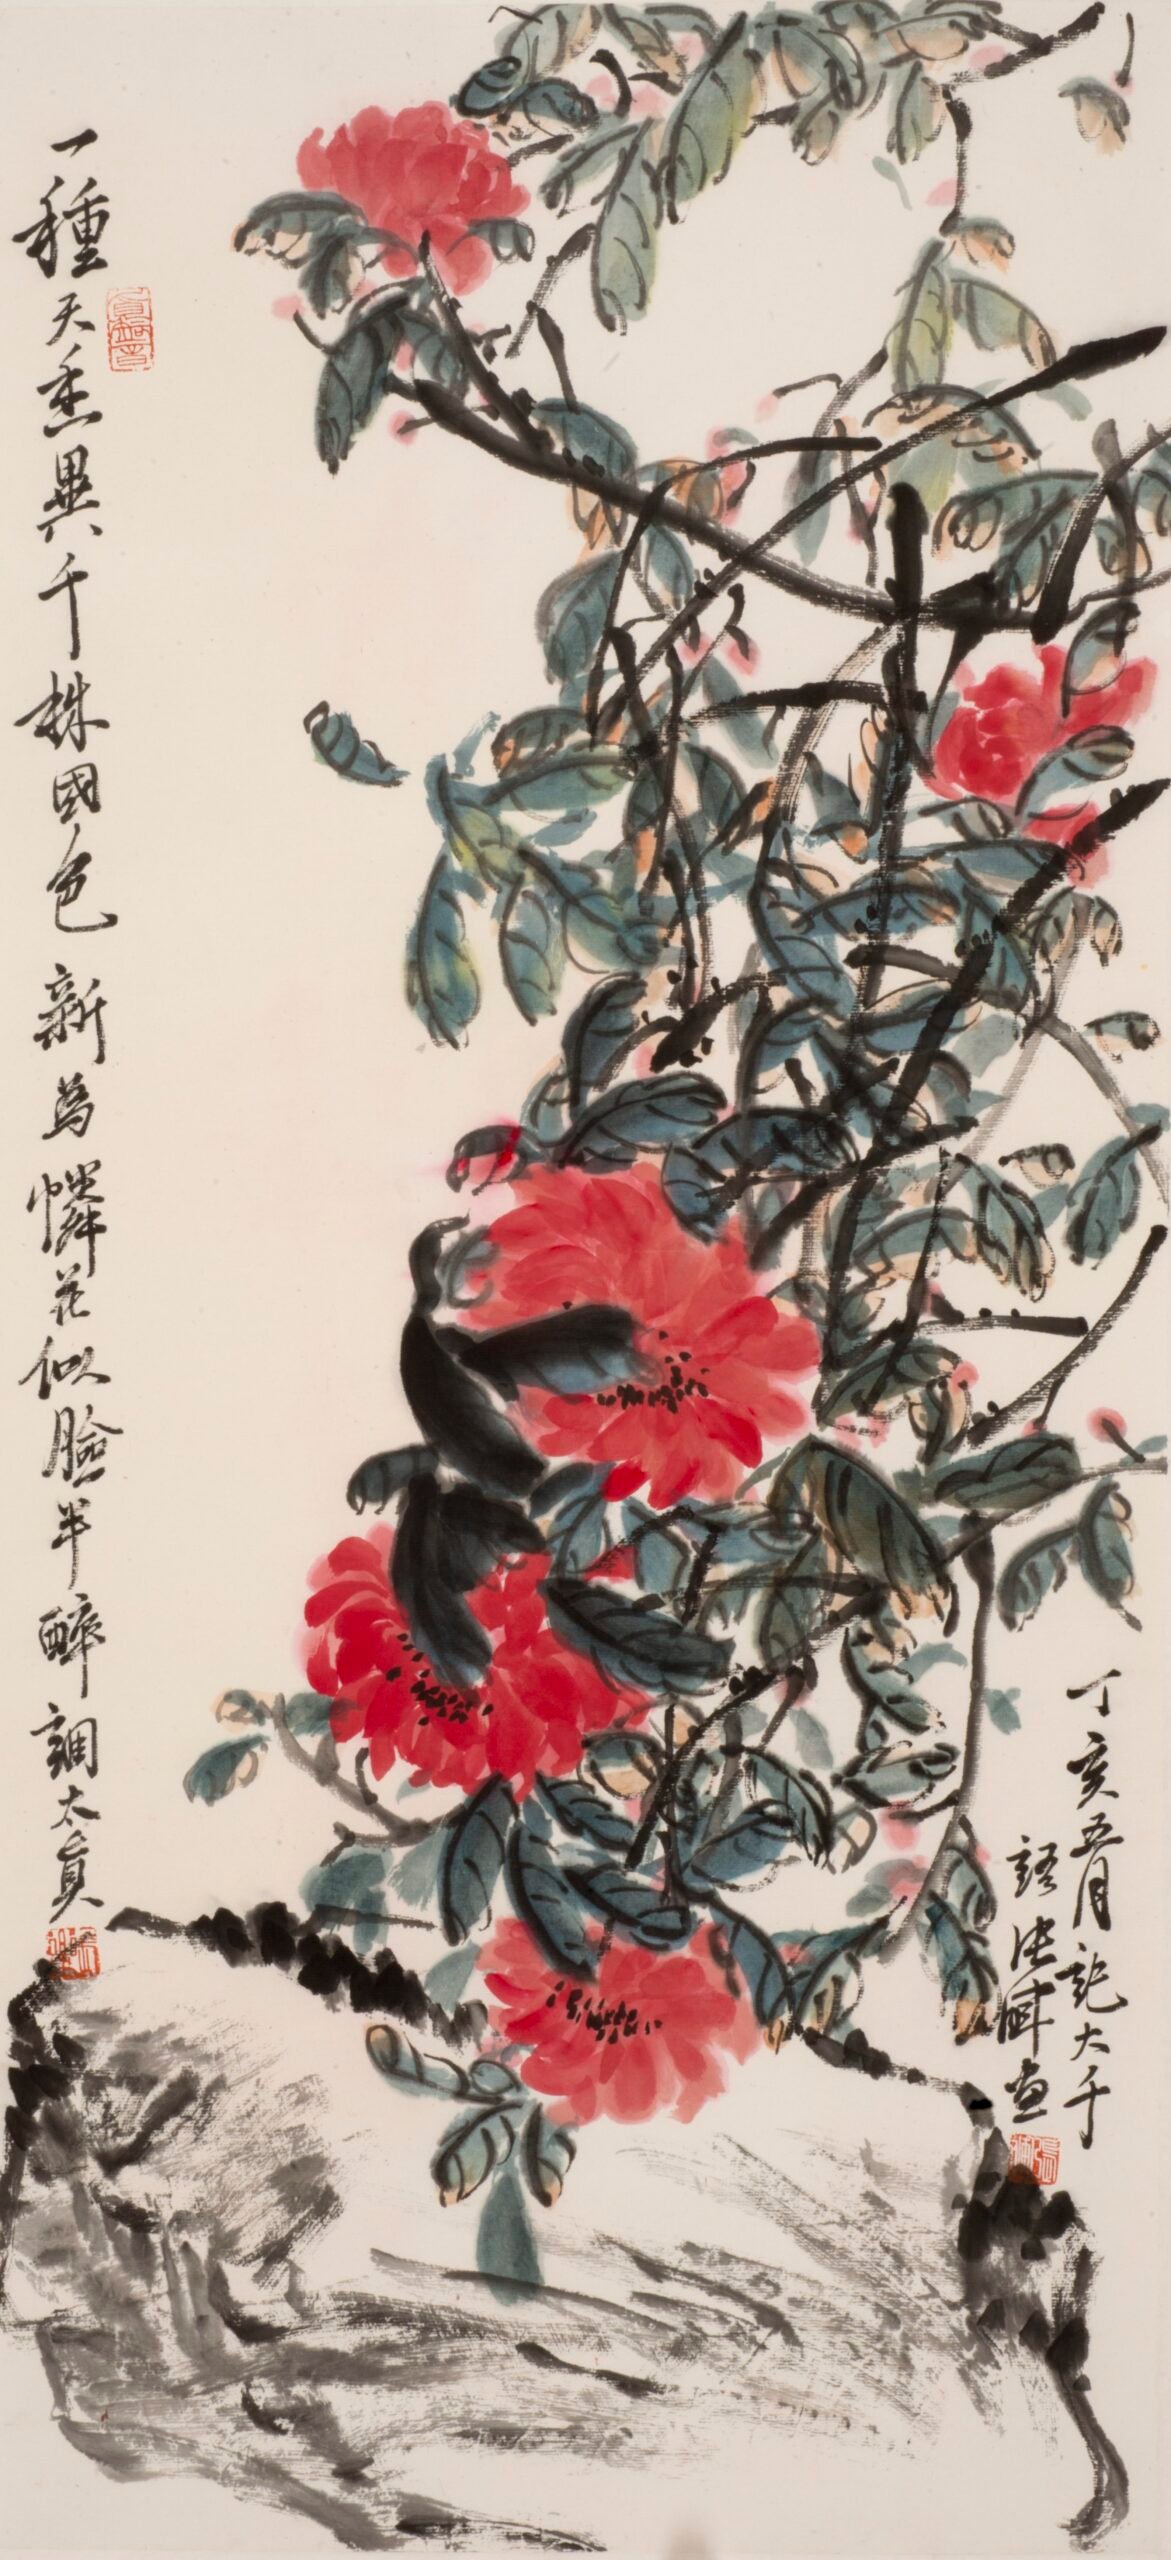 丁亥五月記大千
語張畫
一種天香異千株國色新為憐花似臉半醉調太真